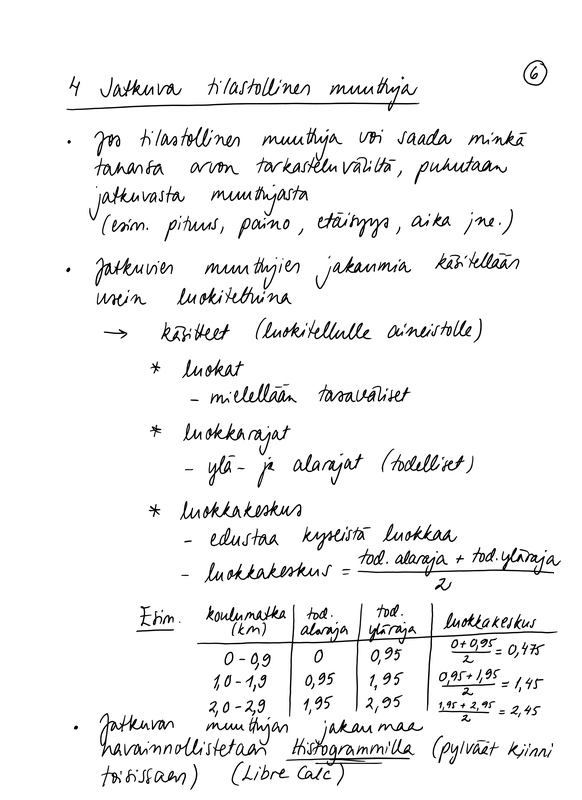 6
4 Jatkuva tilastollinen muuttuja
• Jos tilastollinen muuttuja voi saada minkä
tahansa arvon tarkasteluväliltä, puhutaan
jatkuvasta muuttujasta
(esim. pituus, paino, etäisyys, aika jne.)
• Jatkuvien muuttujien jakaumia käsitellään
usein luokiteltuina
→ käsitteet (luokitellulle aineistolle)
* luokat
- mielellään tasaväliset
* luokkarajat
- ylä- ja alarajat (todelliset)
* luokkakeskus
- edustaa kyseistä luokkaa
- luokkakeskus = (tod. alaraja + tod. yläraja) / 2
Esim. koulumatka (km) | tod. alaraja | tod. yläraja | luokkakeskus
0-0,9 | 0 | 0,95 | (0+0,95)/2 = 0,475
1,0-1,9 | 0,95 | 1,95 | (0,95+1,95)/2 = 1,45
2,0-2,9 | 1,95 | 2,95 | (1,95+2,95)/2 = 2,45
• Jatkuvan muuttujan jakaumaa
havainnollistetaan Histogrammilla (pylväät kiinni
toisissaan) (Libre Calc)